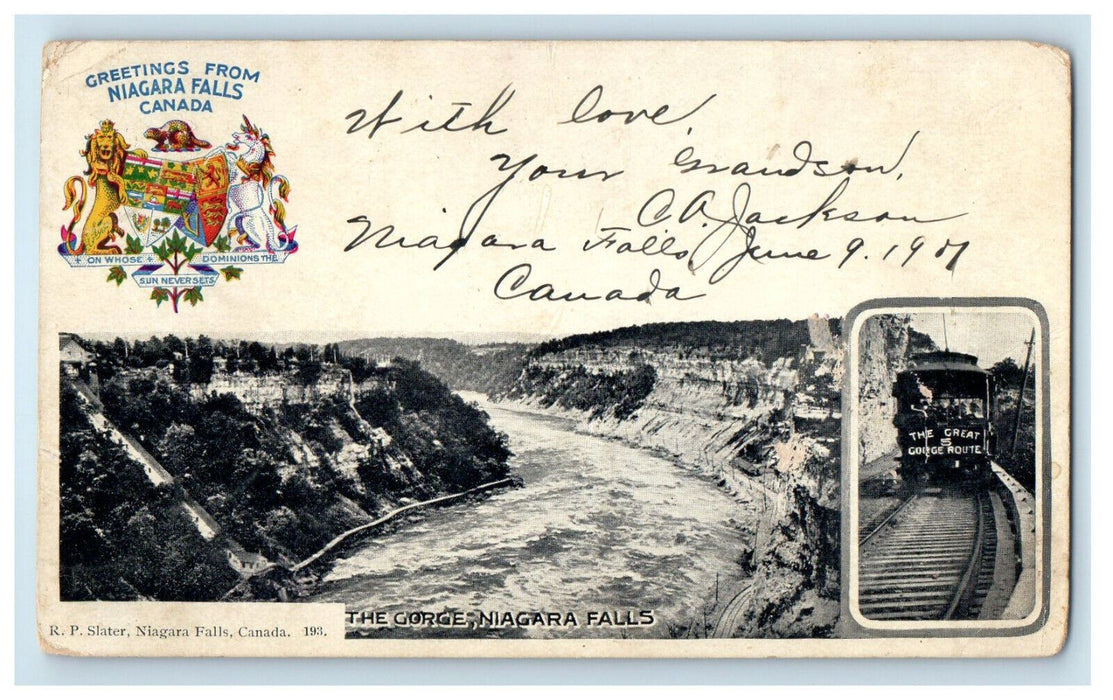 GREETINGS FROM
NIAGARA FALLS
CANADA
ON WHOSE DOMINIONS THE
SUN NEVER SETS
With love,
Your Grandson,
C.A. Jackson
Niagara Falls June 9. 1901
Canada
THE GREAT
5
GORGE ROUTE
THE GORGE, NIAGARA FALLS
R. P. Slater, Niagara Falls, Canada. 193.